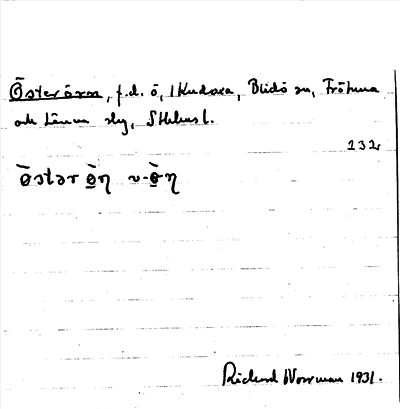 Österören, f.d. ö, 1 Kudoxa, Blidö sn, Frötuna
och Länna skg, Sthlms l.
232
ø̀stər ø̱̀ŋ ~ -ø̱̀ŋ
Rickard Norrman 1931.